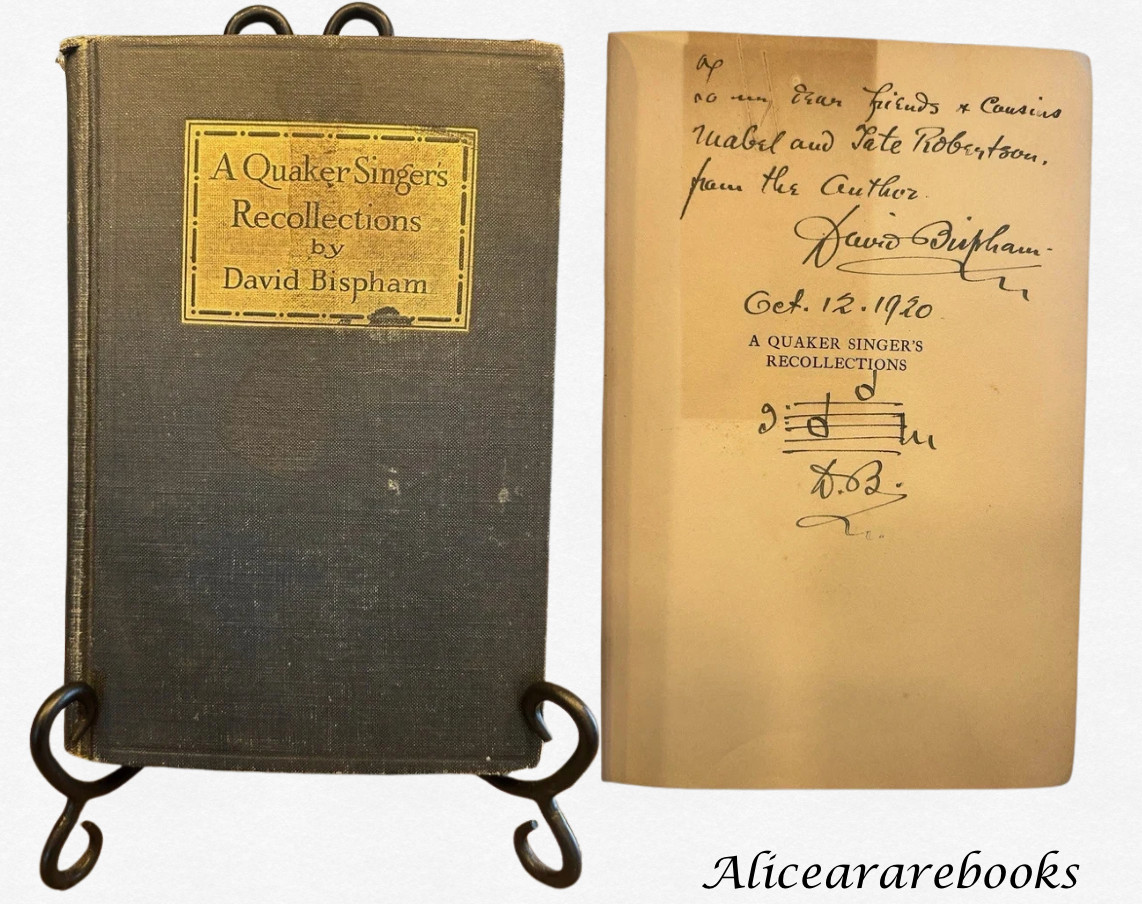 A Quaker Singer's
Recollections
by
David Bispham
to my dear friends & Cousins
Mabel and Tate Robertson,
from the Author.
David Bispham
Oct. 12. 1920
A QUAKER SINGER'S
RECOLLECTIONS
D.B.
Alicearararebooks